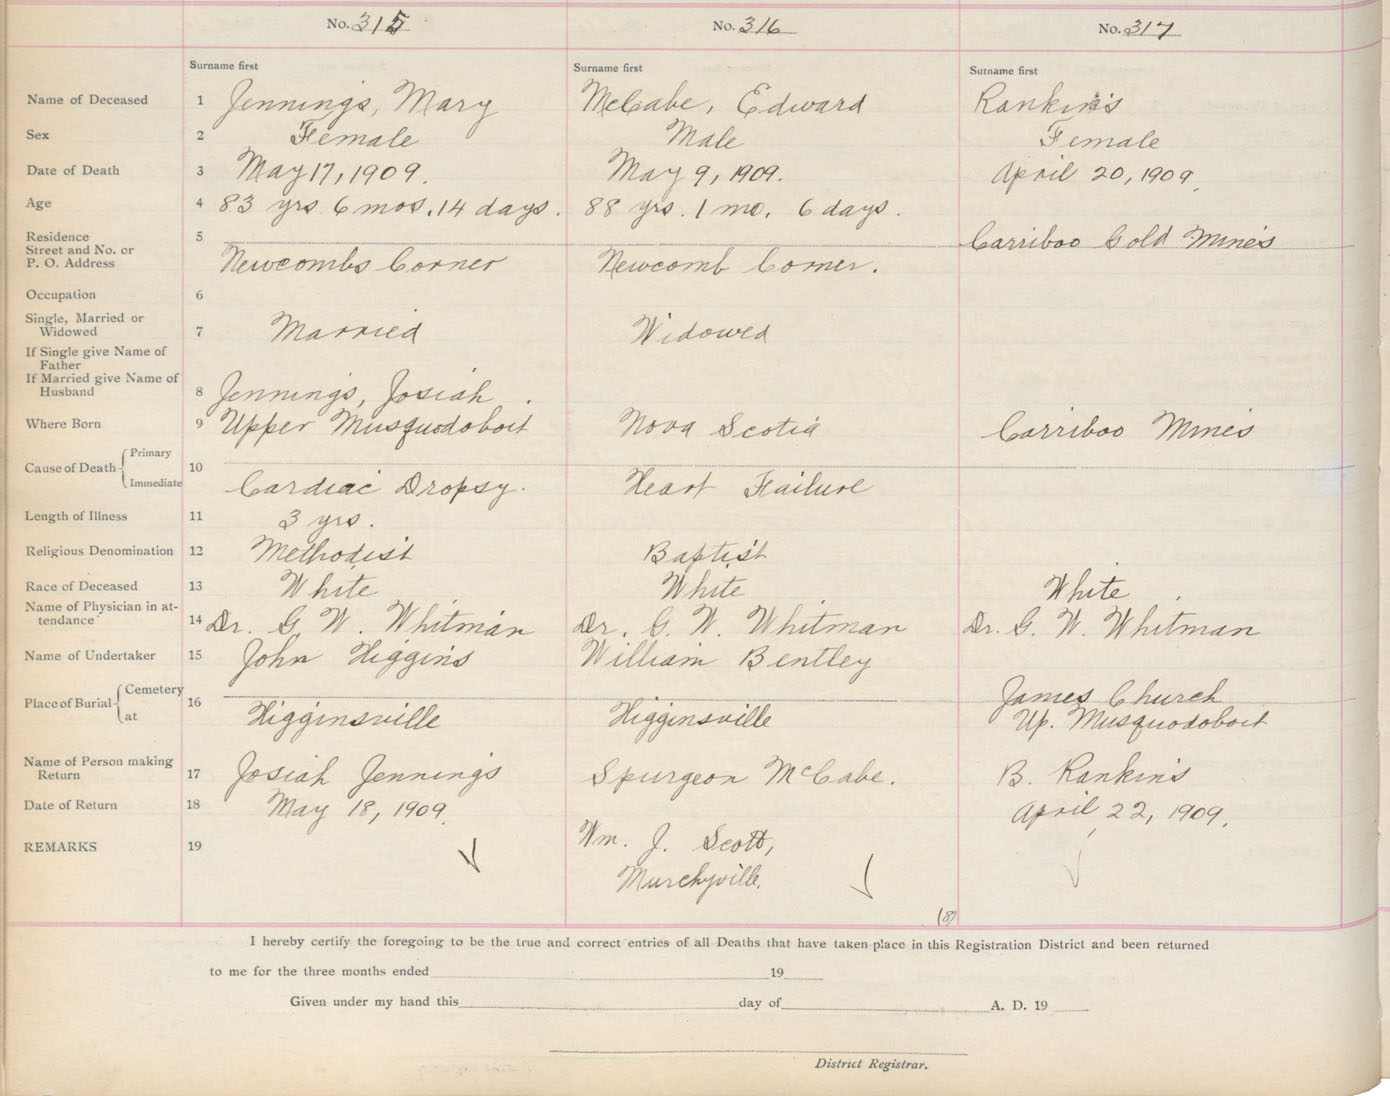 No. 315 No. 316 No. 317
Surname first Surname first Surname first
Name of Deceased 1 Jennings, Mary McCabe, Edward Rankins
Sex 2 Female Male Female
Date of Death 3 May 17, 1909. May 9, 1909. April 20, 1909.
Age 4 83 yrs 6 mos. 14 days. 88 yrs. 1 mo. 6 days.
Residence 5 Carriboo Gold Mines
Street and No. or
P. O. Address Newcombs Corner Newcomb Corner.
Occupation 6
Single, Married or
Widowed 7 Married Widowed
If Single give Name of
Father
If Married give Name of
Husband 8 Jennings, Josiah.
Where Born 9 Upper Musquodoboit Nova Scotia Carriboo Mines
Cause of Death Primary 10
Immediate Cardiac Dropsy. Heart Failure
Length of Illness 11 3 yrs.
Religious Denomination 12 Methodist Baptist
Race of Deceased 13 White White White.
Name of Physician in at-
tendance 14 Dr. G. W. Whitman Dr. G. W. Whitman Dr. G. W. Whitman
Name of Undertaker 15 John Higgins William Bentley
Place of Burial Cemetery 16 James Church
at Higginsville Higginsville Up. Musquodoboit
Name of Person making
Return 17 Josiah Jennings Spurgeon McCabe. B. Rankins
Date of Return 18 May 18, 1909. April 22, 1909.
REMARKS 19 Wm. J. Scott,
Murchyville.
(8)
I hereby certify the foregoing to be the true and correct entries of all Deaths that have taken place in this Registration District and been returned
to me for the three months ended 19
Given under my hand this day of A. D. 19
District Registrar.